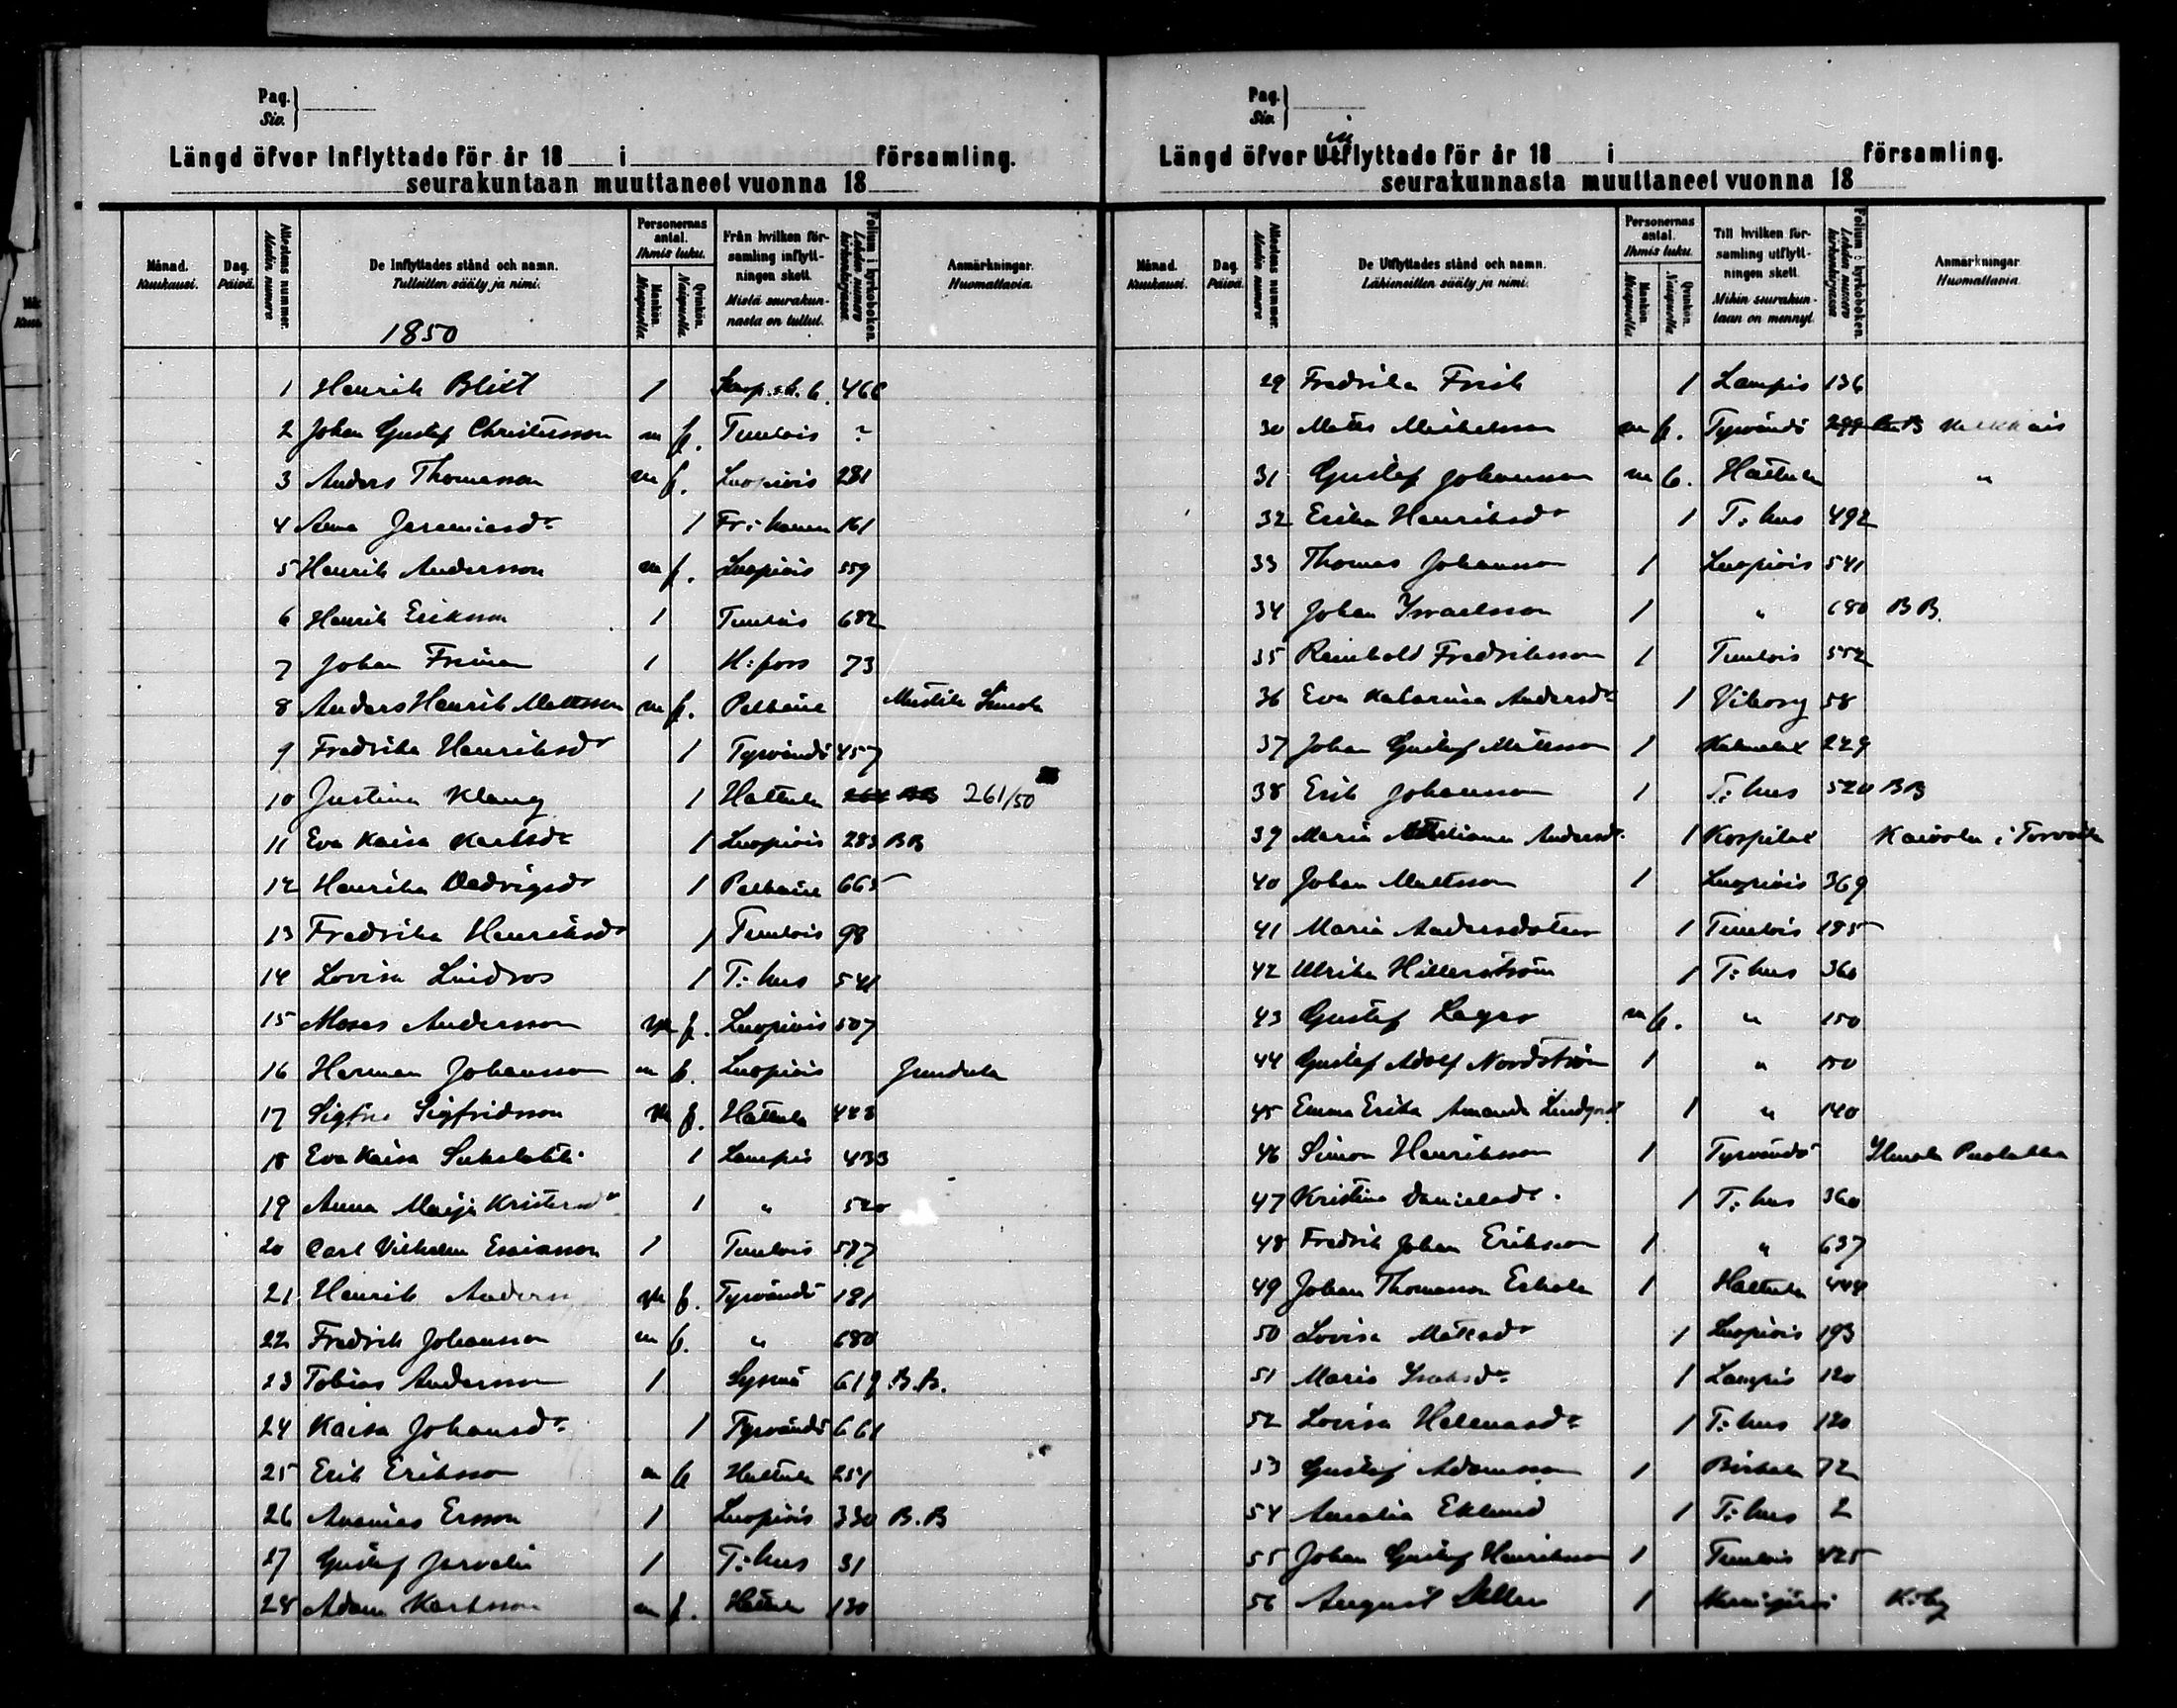 Pag.
Siv.
Längd öfver Inflyttade för år 18 i församling.
seurakuntaan muuttaneet vuonna 18
Månad. Kuukausi.
Dag. Päivä.
Attestens nummer. Multin numero
De Inflyttades stånd och namn.
Tulleitten sääty ja nimi.
Personernas antal. Ihmis luku.
Mankön. Miespuolia
Qvinkön. Naispuolia
Från hvilken församling inflyttningen skett.
Mistä seurakunnasta on tullut.
Folium i kyrkoboken. Lehden numero kirkonkirjassa.
Anmärkningar. Huomattavia.
1850
1 Henrik Blixt 1 466
2 Johan Gustaf Christersson m f. Tuulois ?
3 Anders Thomasson m f. Luopiois 281
4 Anna Jeremiasdr 1 161
5 Henrik Andersson m f. Luopiois 559
6 Henrik Eriksson 1 Tuulois 682
7 Johan Friman 1 H:fors 73
8 Anders Henrik Mattsson m f. Pelkäne
9 Fredrika Henriksdr 1 Tyrvändö 457
10 Justina Klang 1 Hattula 261/50
11 Eva Kaisa Karlsdr 1 Luopiois 283 BB
12 Henrika Hedvigsdr 1 Pelkäne 665
13 Fredrika Henriksdr 1 Tuulois 98
14 Lovisa Lindros 1 T:hus 541
15 Moses Andersson m f. Luopiois 507
16 Herman Johansson m f. Luopiois
17 Sigfrid Sigfridsson m f. Hattula 443
18 Eva Kaisa 1 Lampis 433
19 Anna Maija Kristersdr 1 " 520
20 Carl Vilhelm Esaiasson 1 Tuulois 587
21 Henrik Anderss m f. Tyrvändö 181
22 Fredrik Johansson m f. " 680
23 Tobias Andersson 1 Sysmä 619 B.B.
24 Kaisa Johansdr 1 Tyrvändö 661
25 Erik Eriksson m f Hattula 251
26 Ananias Ersson 1 Luopiois 330 B.B
27 Gustaf Jervelin 1 T:hus 31
28 Adam Karlsson m f. Hattula 130
Pag.
Siv.
in
Längd öfver Utflyttade för år 18 i församling.
seurakunnasta muuttaneet vuonna 18
Månad. Kuukausi.
Dag. Päivä.
Attestens nummer. Multin numero
De Utflyttades stånd och namn.
Lähteneitten sääty ja nimi.
Personernas antal. Ihmis luku.
Mankön. Miespuolia
Qvinkön. Naispuolia
Till hvilken församling utflyttningen skett.
Mihin seurakuntaan on mennyt.
Folium i kyrkoboken. Lehden numero kirkonkirjassa
Anmärkningar. Huomattavia.
29 Fredrika Frisk 1 Lampis 136
30 Matts Michelsson m f. Tyrvändö 299
31 Gustaf Johansson m f. Hattula "
32 Erika Henriksdr 1 T:hus 492
33 Thomas Johansson 1 Luopiois 541
34 Johan Israelsson 1 " 680 BB.
35 Reinhold Fredriksson 1 Tuulois 552
36 Eva Katarina Andersdr 1 Viborg 58
37 Johan Gustaf Mattsson 1 229
38 Erik Johansson 1 T:hus 520 BB
39 Maria Andersdr. 1 Kaivola i
40 Johan Mattsson 1 Luopiois 369
41 Maria Andersdotter 1 Tuulois 185
42 Ulrika Hillerström 1 T:hus 360
43 Gustaf m f. " 150
44 Gustaf Adolf Nordström 1 " 150
45 Emma Erika Amanda Lindqvist 1 " 140
46 Simon Henriksson 1 Tyrvändö
47 Kristina Danielsdr. 1 T:hus 360
48 Fredrik Johan Eriksson 1 " 637
49 Johan Thomasson Eskola 1 Hattula 444
50 Lovisa Mattsdr 1 Luopiois 193
51 Maria Isaksdr 1 Lampis 120
52 Lovisa Helenasdr 1 T:hus 120
53 Gustaf Adamsson 1 Birkala 72
54 Amalia Eklund 1 T:hus 2
55 Johan Gustaf Henriksson 1 Tuulois 425
56 August 1 K:by